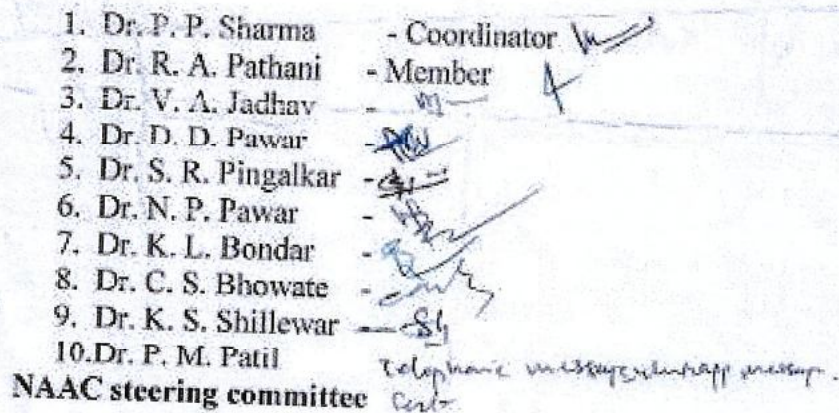 1. Dr. P. P. Sharma - Coordinator
2. Dr. R. A. Pathani - Member
3. Dr. V. A. Jadhav - m
4. Dr. D. D. Pawar -
5. Dr. S. R. Pingalkar -
6. Dr. N. P. Pawar -
7. Dr. K. L. Bondar -
8. Dr. C. S. Bhowate -
9. Dr. K. S. Shillewar -
10.Dr. P. M. Patil Telephonic message, whatsapp message.
NAAC steering committee Sent